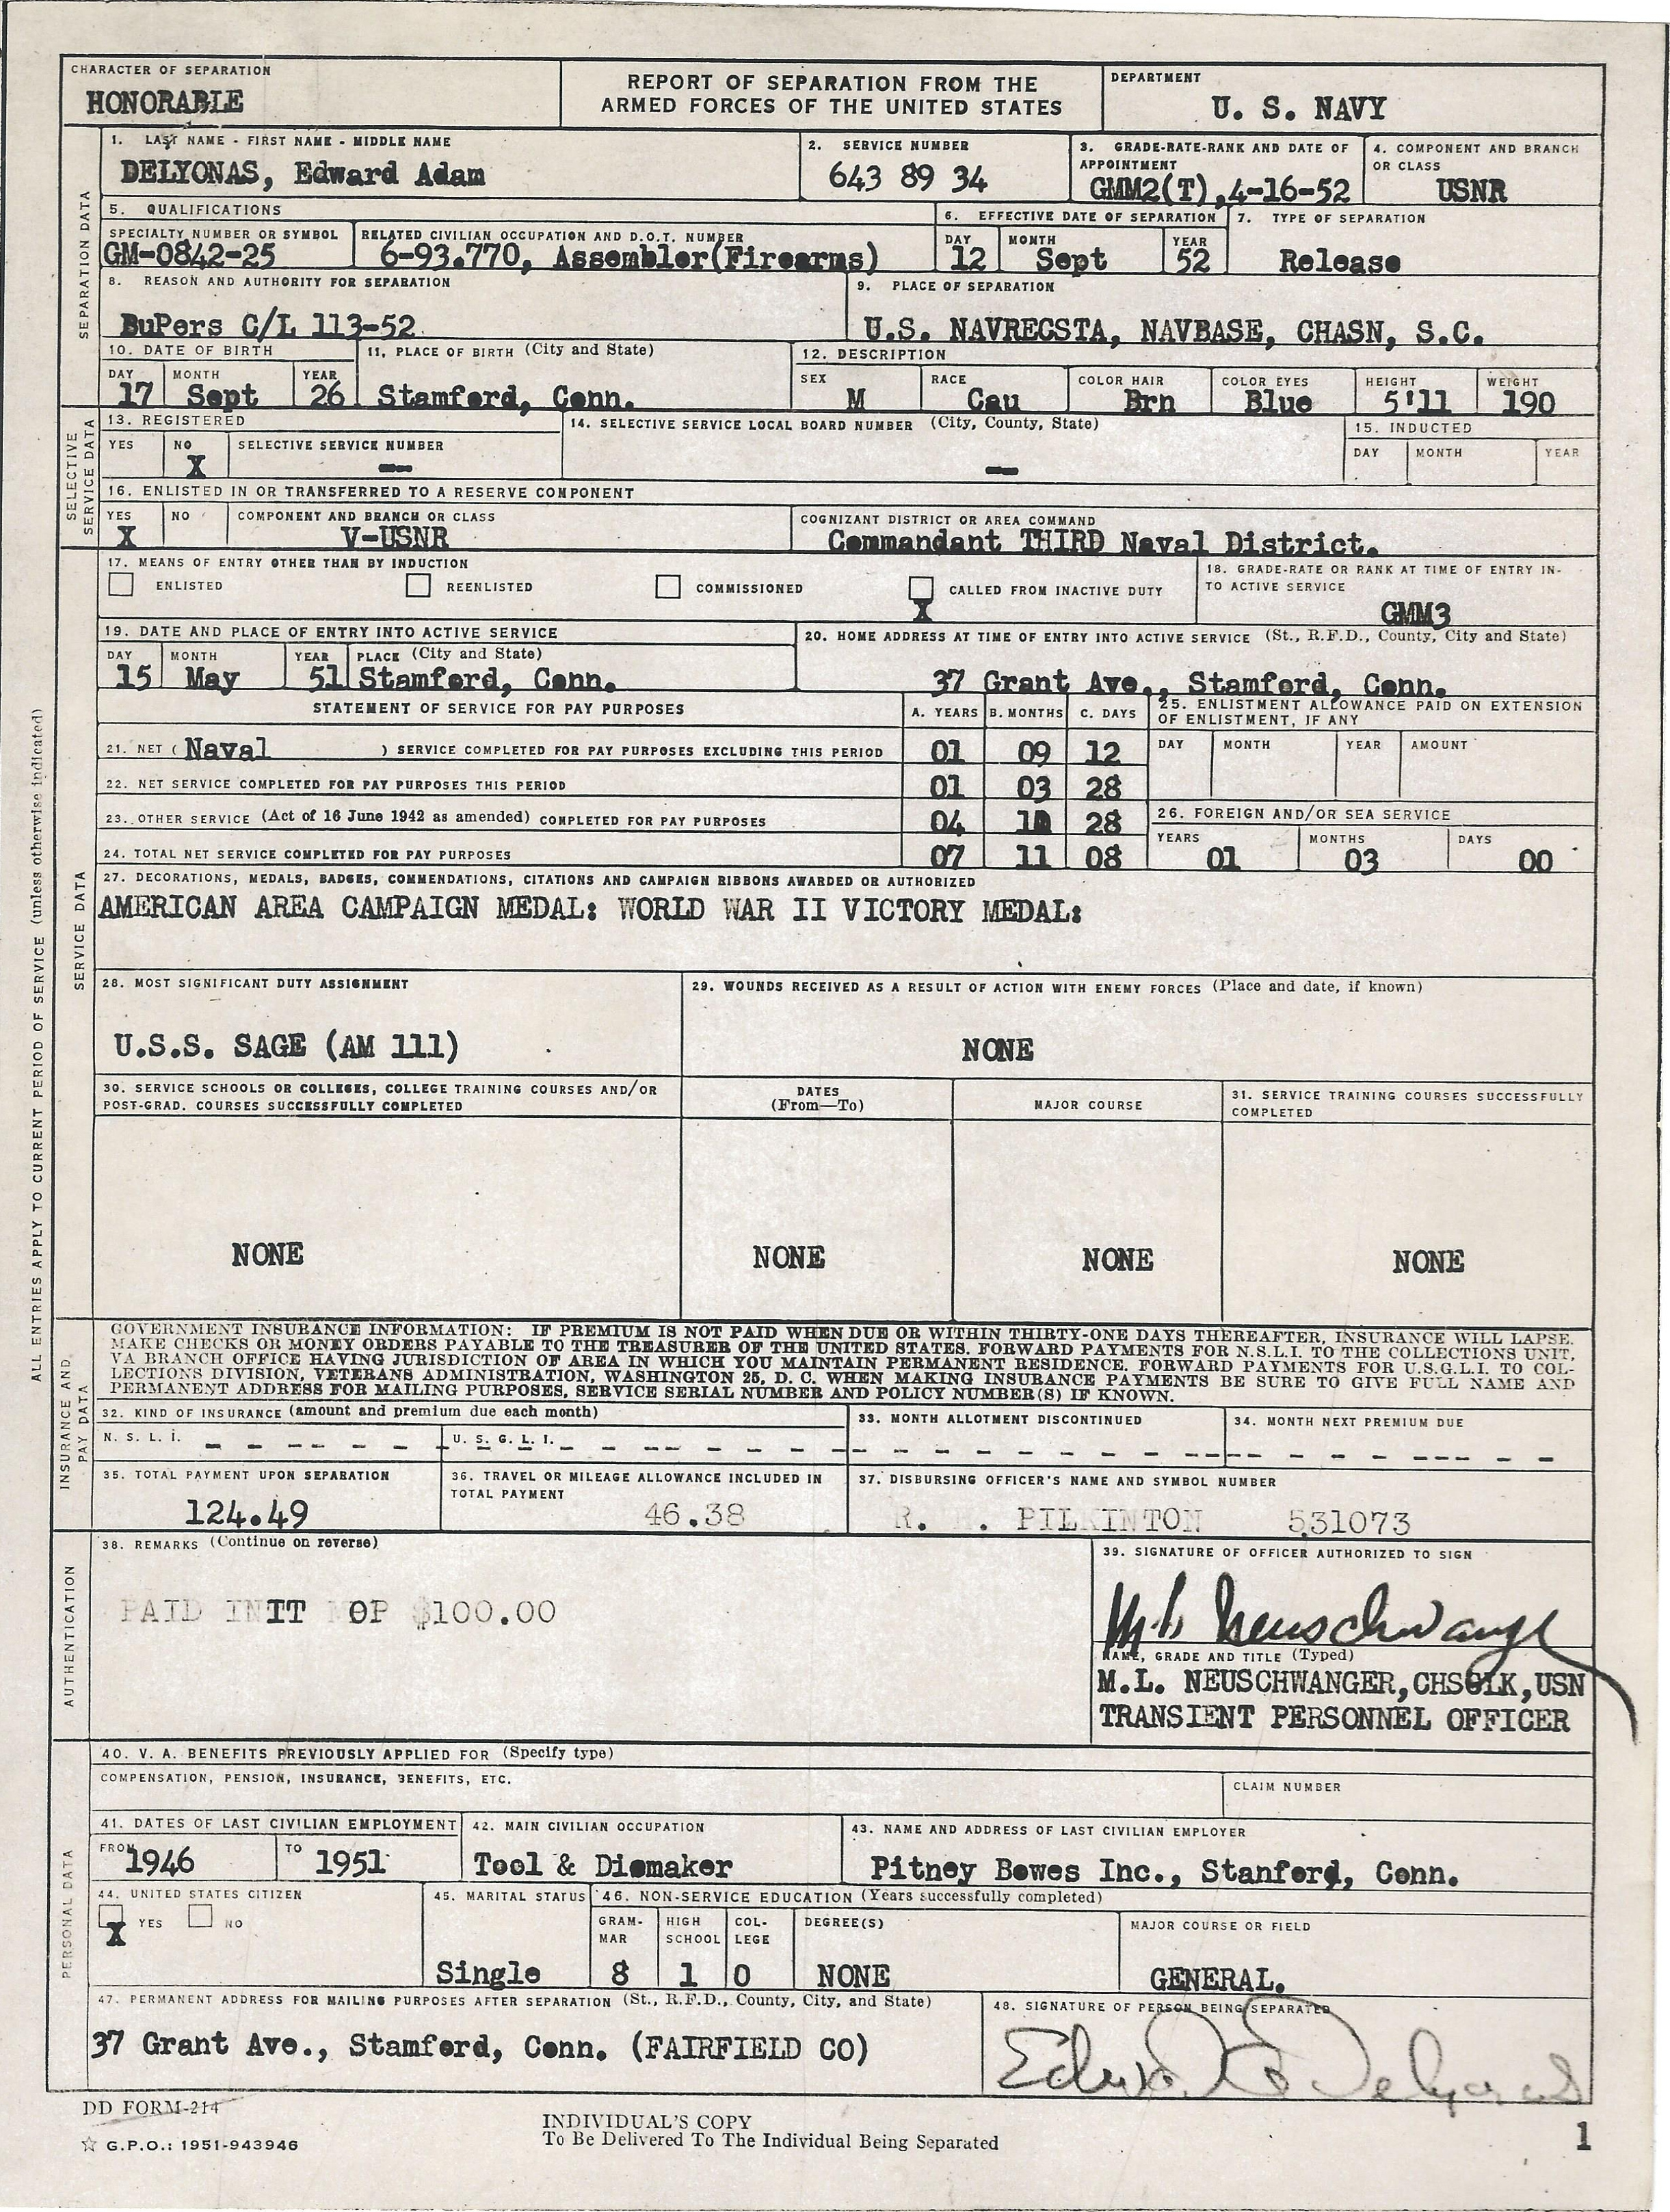 CHARACTER OF SEPARATION
HONORABLE
REPORT OF SEPARATION FROM THE
ARMED FORCES OF THE UNITED STATES
DEPARTMENT
U. S. NAVY
SEPARATION DATA
1. LAST NAME - FIRST NAME - MIDDLE NAME
DELYONAS, Edward Adam
2. SERVICE NUMBER
643 89 34
3. GRADE-RATE-RANK AND DATE OF
APPOINTMENT
GMM2(T),4-16-52
4. COMPONENT AND BRANCH
OR CLASS
USNR
5. QUALIFICATIONS
SPECIALTY NUMBER OR SYMBOL
GM-0842-25
RELATED CIVILIAN OCCUPATION AND D.O.T. NUMBER
6-93.770, Assembler(Firearms)
6. EFFECTIVE DATE OF SEPARATION
DAY MONTH YEAR
12 Sept 52
7. TYPE OF SEPARATION
Release
8. REASON AND AUTHORITY FOR SEPARATION
BuPers C/L 113-52
9. PLACE OF SEPARATION
U.S. NAVRECSTA, NAVBASE, CHASN, S.C.
10. DATE OF BIRTH
DAY MONTH YEAR
17 Sept 26
11. PLACE OF BIRTH (City and State)
Stamford, Conn.
12. DESCRIPTION
SEX RACE COLOR HAIR COLOR EYES HEIGHT WEIGHT
M Cau Brn Blue 5'11 190
SELECTIVE
SERVICE DATA
13. REGISTERED
YES NO SELECTIVE SERVICE NUMBER
X —
14. SELECTIVE SERVICE LOCAL BOARD NUMBER (City, County, State)
—
15. INDUCTED
DAY MONTH YEAR
16. ENLISTED IN OR TRANSFERRED TO A RESERVE COMPONENT
YES NO COMPONENT AND BRANCH OR CLASS
X V-USNR
COGNIZANT DISTRICT OR AREA COMMAND
Commandant THIRD Naval District.
ALL ENTRIES APPLY TO CURRENT PERIOD OF SERVICE (unless otherwise indicated)
SERVICE DATA
17. MEANS OF ENTRY OTHER THAN BY INDUCTION
ENLISTED REENLISTED COMMISSIONED X CALLED FROM INACTIVE DUTY
18. GRADE-RATE OR RANK AT TIME OF ENTRY IN-
TO ACTIVE SERVICE
GMM3
19. DATE AND PLACE OF ENTRY INTO ACTIVE SERVICE
DAY MONTH YEAR PLACE (City and State)
15 May 51 Stamford, Conn.
20. HOME ADDRESS AT TIME OF ENTRY INTO ACTIVE SERVICE (St., R.F.D., County, City and State)
37 Grant Ave., Stamford, Conn.
STATEMENT OF SERVICE FOR PAY PURPOSES A. YEARS B. MONTHS C. DAYS
21. NET ( Naval ) SERVICE COMPLETED FOR PAY PURPOSES EXCLUDING THIS PERIOD 01 09 12
22. NET SERVICE COMPLETED FOR PAY PURPOSES THIS PERIOD 01 03 28
23. OTHER SERVICE (Act of 16 June 1942 as amended) COMPLETED FOR PAY PURPOSES 04 28
24. TOTAL NET SERVICE COMPLETED FOR PAY PURPOSES 07 11 08
25. ENLISTMENT ALLOWANCE PAID ON EXTENSION
OF ENLISTMENT, IF ANY
DAY MONTH YEAR AMOUNT
26. FOREIGN AND/OR SEA SERVICE
YEARS MONTHS DAYS
01 03 00
27. DECORATIONS, MEDALS, BADGES, COMMENDATIONS, CITATIONS AND CAMPAIGN RIBBONS AWARDED OR AUTHORIZED
AMERICAN AREA CAMPAIGN MEDAL: WORLD WAR II VICTORY MEDAL:
28. MOST SIGNIFICANT DUTY ASSIGNMENT
U.S.S. SAGE (AM 111)
29. WOUNDS RECEIVED AS A RESULT OF ACTION WITH ENEMY FORCES (Place and date, if known)
NONE
30. SERVICE SCHOOLS OR COLLEGES, COLLEGE TRAINING COURSES AND/OR
POST-GRAD. COURSES SUCCESSFULLY COMPLETED
DATES
(From—To)
MAJOR COURSE
31. SERVICE TRAINING COURSES SUCCESSFULLY
COMPLETED
NONE NONE NONE NONE
INSURANCE AND
PAY DATA
GOVERNMENT INSURANCE INFORMATION: IF PREMIUM IS NOT PAID WHEN DUE OR WITHIN THIRTY-ONE DAYS THEREAFTER, INSURANCE WILL LAPSE.
MAKE CHECKS OR MONEY ORDERS PAYABLE TO THE TREASURER OF THE UNITED STATES. FORWARD PAYMENTS FOR N.S.L.I. TO THE COLLECTIONS UNIT,
VA BRANCH OFFICE HAVING JURISDICTION OF AREA IN WHICH YOU MAINTAIN PERMANENT RESIDENCE. FORWARD PAYMENTS FOR U.S.G.L.I. TO COL-
LECTIONS DIVISION, VETERANS ADMINISTRATION, WASHINGTON 25, D. C. WHEN MAKING INSURANCE PAYMENTS BE SURE TO GIVE FULL NAME AND
PERMANENT ADDRESS FOR MAILING PURPOSES, SERVICE SERIAL NUMBER AND POLICY NUMBER(S) IF KNOWN.
32. KIND OF INSURANCE (amount and premium due each month)
N. S. L. I. U. S. G. L. I.
33. MONTH ALLOTMENT DISCONTINUED
34. MONTH NEXT PREMIUM DUE
35. TOTAL PAYMENT UPON SEPARATION
124.49
36. TRAVEL OR MILEAGE ALLOWANCE INCLUDED IN
TOTAL PAYMENT
46.38
37. DISBURSING OFFICER'S NAME AND SYMBOL NUMBER
R. . PILKINTON 531073
AUTHENTICATION
38. REMARKS (Continue on reverse)
PAID INIT MOP $100.00
39. SIGNATURE OF OFFICER AUTHORIZED TO SIGN
M. L. Neuschwanger
NAME, GRADE AND TITLE (Typed)
M.L. NEUSCHWANGER,CHSCLK,USN
TRANSIENT PERSONNEL OFFICER
PERSONAL DATA
40. V. A. BENEFITS PREVIOUSLY APPLIED FOR (Specify type)
COMPENSATION, PENSION, INSURANCE, BENEFITS, ETC.
CLAIM NUMBER
41. DATES OF LAST CIVILIAN EMPLOYMENT
FROM 1946 TO 1951
42. MAIN CIVILIAN OCCUPATION
Tool & Diemaker
43. NAME AND ADDRESS OF LAST CIVILIAN EMPLOYER
Pitney Bowes Inc., Stanford, Conn.
44. UNITED STATES CITIZEN
X YES NO
45. MARITAL STATUS
Single
46. NON-SERVICE EDUCATION (Years successfully completed)
GRAM-
MAR
8
HIGH
SCHOOL
1
COL-
LEGE
0
DEGREE(S)
NONE
MAJOR COURSE OR FIELD
GENERAL.
47. PERMANENT ADDRESS FOR MAILING PURPOSES AFTER SEPARATION (St., R.F.D., County, City, and State)
37 Grant Ave., Stamford, Conn. (FAIRFIELD CO)
48. SIGNATURE OF PERSON BEING SEPARATED
Edward A Delyonas
DD FORM-214
☆ G.P.O.: 1951-943946
INDIVIDUAL'S COPY
To Be Delivered To The Individual Being Separated
1